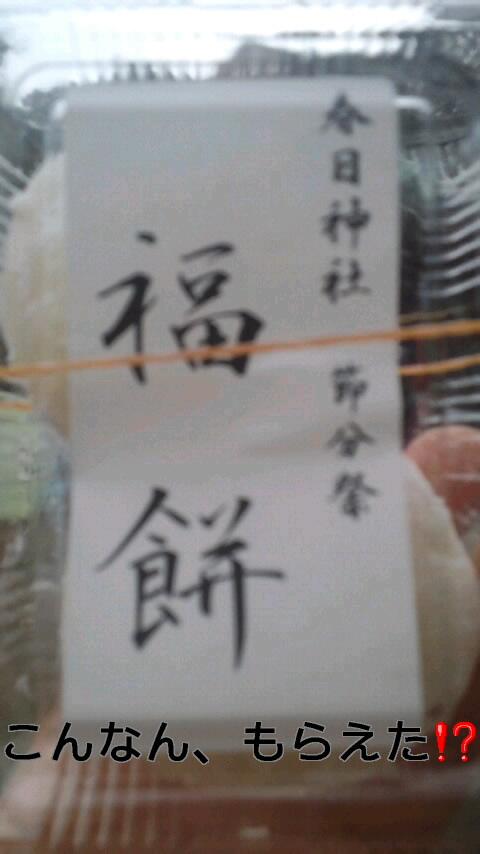 春日神社 節分祭
福餅
こんなん、もらえた⁉️